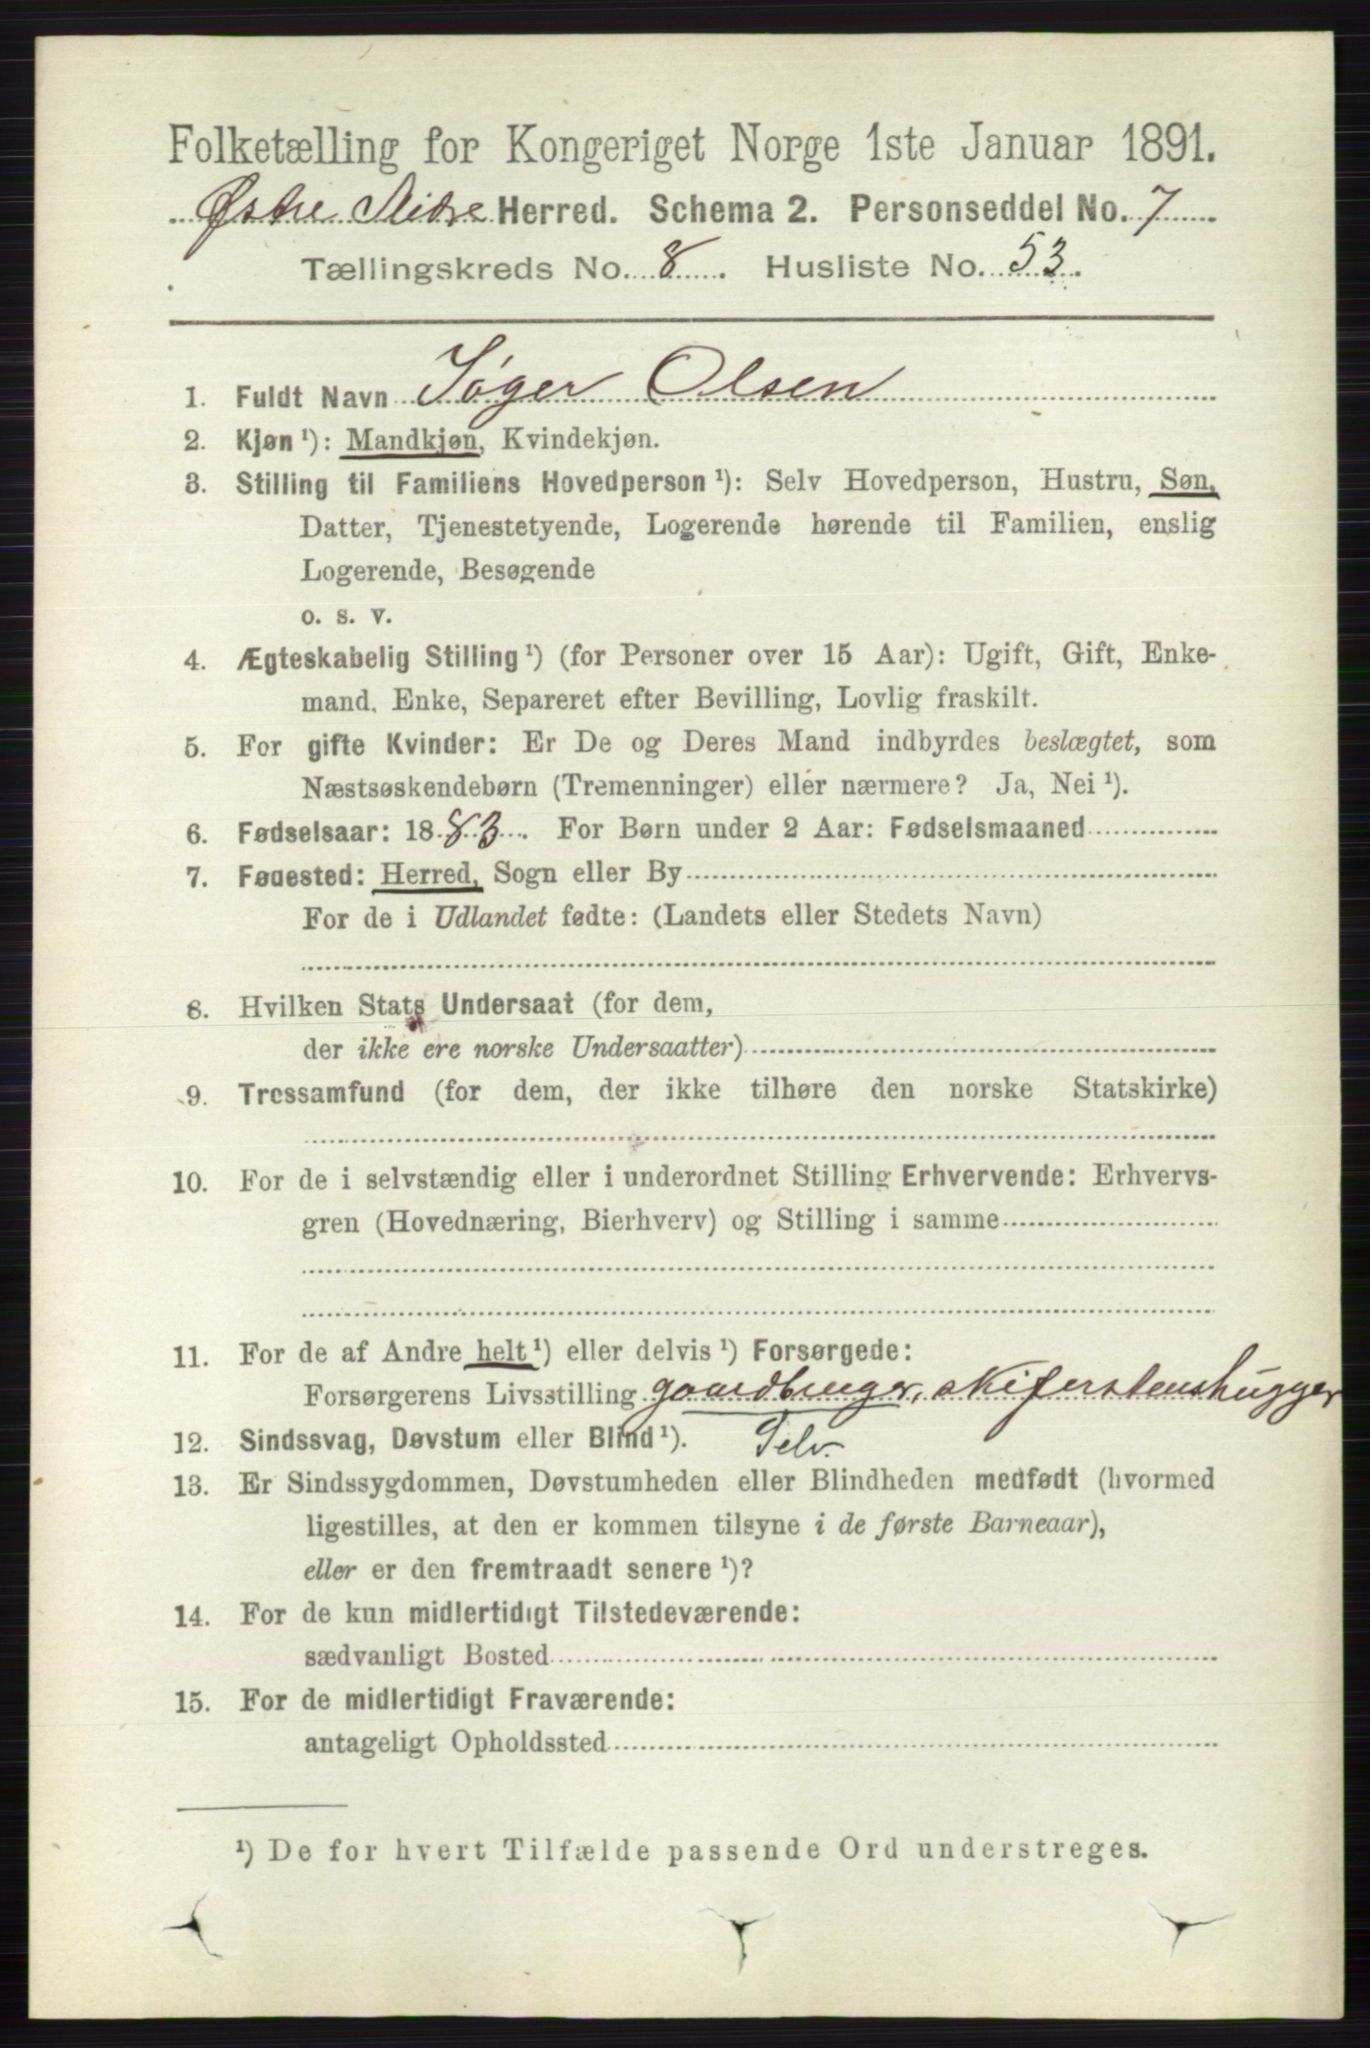 Folketælling for Kongeriget Norge 1ste Januar 1891.
Østre Slidre Herred. Schema 2. Personseddel No. 7
Tællingskreds No. 8. Husliste No. 53.
1. Fuldt Navn Jøger Olsen
2. Kjøn ¹): Mandkjøn, Kvindekjøn.
3. Stilling til Familiens Hovedperson ¹): Selv Hovedperson, Hustru, Søn,
Datter, Tjenestetyende, Logerende hørende til Familien, enslig
Logerende, Besøgende
o. s. v.
4. Ægteskabelig Stilling ¹) (for Personer over 15 Aar): Ugift, Gift, Enke-
mand, Enke, Separeret efter Bevilling, Lovlig fraskilt.
5. For gifte Kvinder: Er De og Deres Mand indbyrdes beslægtet, som
Næstsøskendebørn (Tremenninger) eller nærmere? Ja, Nei ¹).
6. Fødselsaar: 1883. For Børn under 2 Aar: Fødselsmaaned
7. Fødested: Herred, Sogn eller By
For de i Udlandet fødte: (Landets eller Stedets Navn)
8. Hvilken Stats Undersaat (for dem,
der ikke ere norske Undersaatter)
9. Trossamfund (for dem, der ikke tilhøre den norske Statskirke)
10. For de i selvstændig eller i underordnet Stilling Erhvervende: Erhvervs-
gren (Hovednæring, Bierhverv) og Stilling i samme
11. For de af Andre helt ¹) eller delvis ¹) Forsørgede:
Forsørgerens Livsstilling gaardbruger, skiferstenshugger
12. Sindssvag, Døvstum eller Blind ¹). Selv.
13. Er Sindssygdommen, Døvstumheden eller Blindheden medfødt (hvormed
ligestilles, at den er kommen tilsyne i de første Barneaar),
eller er den fremtraadt senere ¹)?
14. For de kun midlertidigt Tilstedeværende:
sædvanligt Bosted
15. For de midlertidigt Fraværende:
antageligt Opholdssted
¹) De for hvert Tilfælde passende Ord understreges.